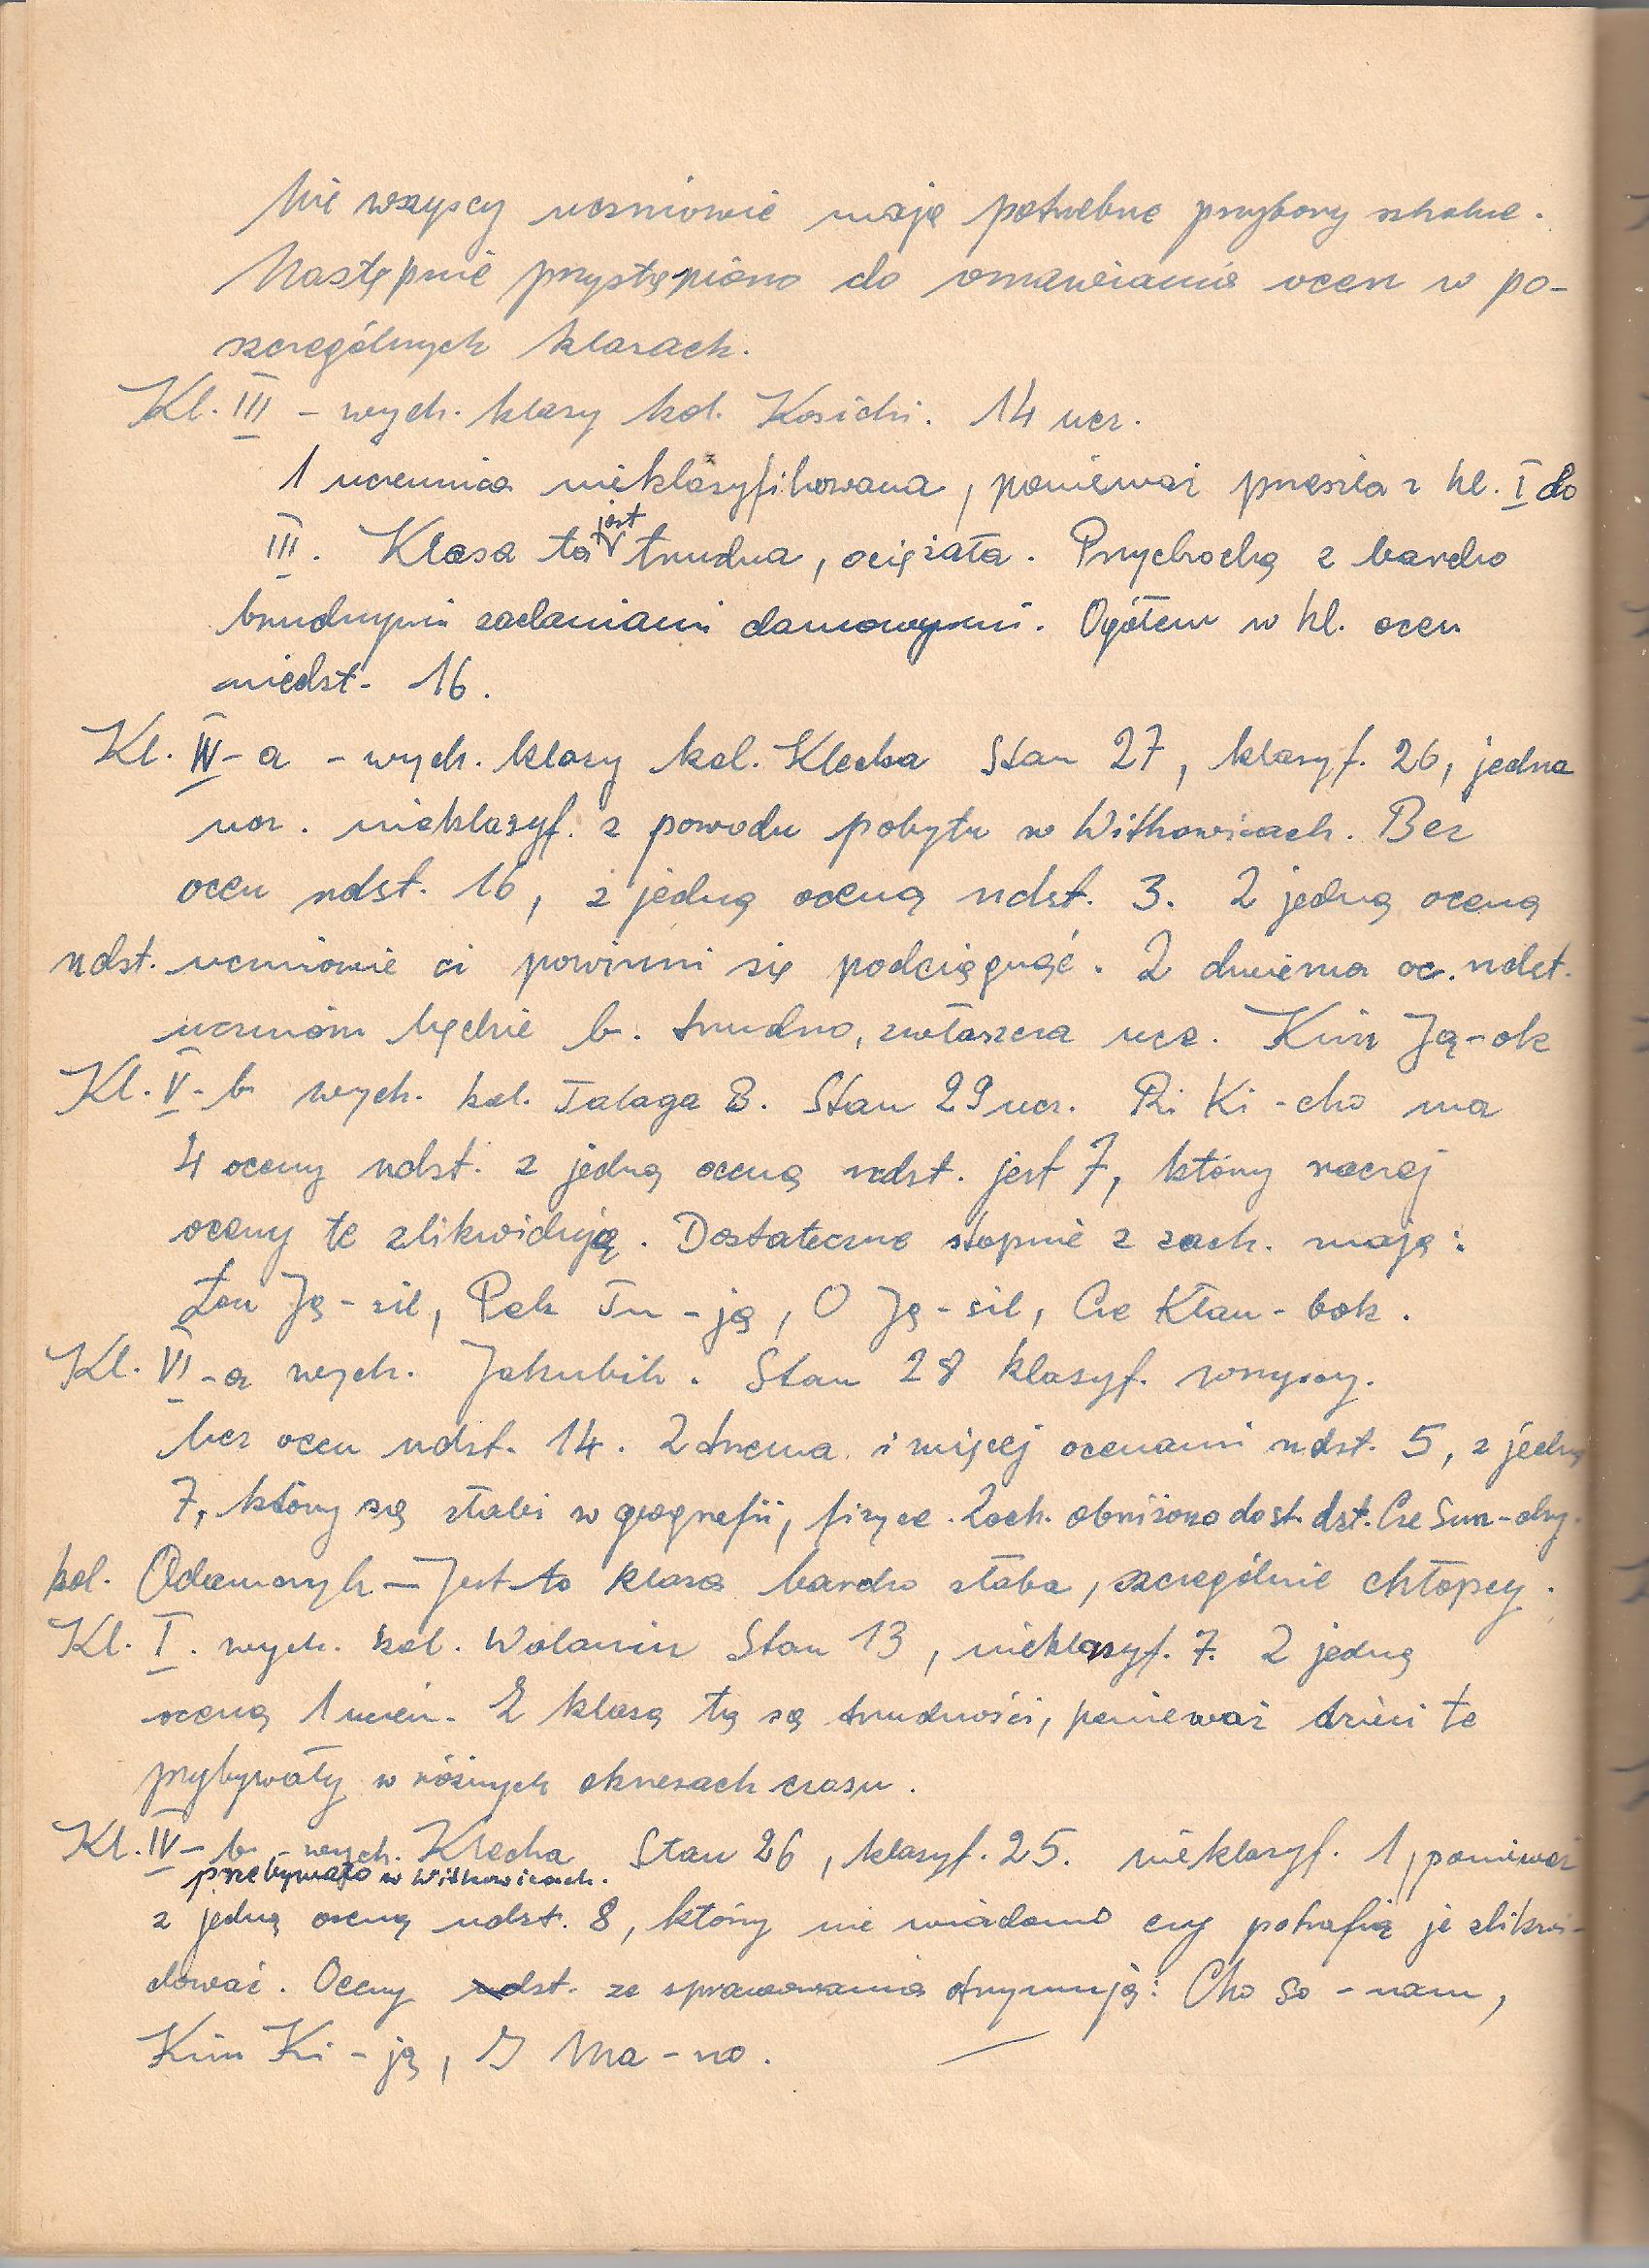 Nie wszyscy uczniowie mają potrzebne przybory szkolne.
Następnie przystąpiono do omawiania ocen w po-
szczególnych klasach.
Kl. III – wych. klasy kol. Kosicki. 14 ucz.
1 uczennica nieklasyfikowana, ponieważ przeszła z kl. I do
III. Klasa ta jest trudna, ociężała. Przychodzą z bardzo
brudnymi zadaniami domowymi. Ogółem w kl. ocen
niedst. 16.
Kl. IV-a – wych. klasy kol. Klecha Stan 27, klasyf. 26, jedna
ucz. nieklasyf. z powodu pobytu w Witkowicach. Bez
ocen ndst. 16, z jedną oceną ndst. 3. Z jedną oceną
ndst. uczniowie ci powinni się podciągnąć. Z dwiema oc. ndst.
uczniom będzie b. trudno, zwłaszcza ucz. Kim Ją-ok
Kl. V-b wych. kol. Talaga B. Stan 29 ucz. Ri Ki-cho ma
4 oceny ndst. z jedną oceną ndst. jest 7, którzy raczej
oceny te zlikwidują. Dostateczne stopnie z zach. mają:
Łon Ją-sil, Pek Tu-ją, O Ją-sil, Cze Kłan-bok.
Kl. VI-a wych. Jakubik. Stan 28 klasyf. wszyscy.
bez ocen ndst. 14. Z dwema i więcej ocenami ndst. 5, z jedną
7, którzy są słabi w geografii, fizyce. Zach. obniżono do st. dst. Cze Sun-
kol. Adamczyk – Jest to klasa bardzo słaba, szczególnie chłopcy.
Kl. I. wych. kol. Wolanin Stan 13, nieklasyf. 7. Z jedną
oceną 1 uczeń. Z klasą tą są trudności, ponieważ dzieci te
przybywały w różnych okresach czasu.
Kl. IV – b – wych. Klecha Stan 26, klasyf. 25. nieklasyf. 1, ponieważ
przebywało w Witkowicach.
z jedną oceną ndst. 8, którzy nie wiadomo czy potrafią je zlikwi-
dować. Oceny dst. ze sprawowania otrzymują: Cho So-nam,
Kim Ki-ją, I Ma-no.